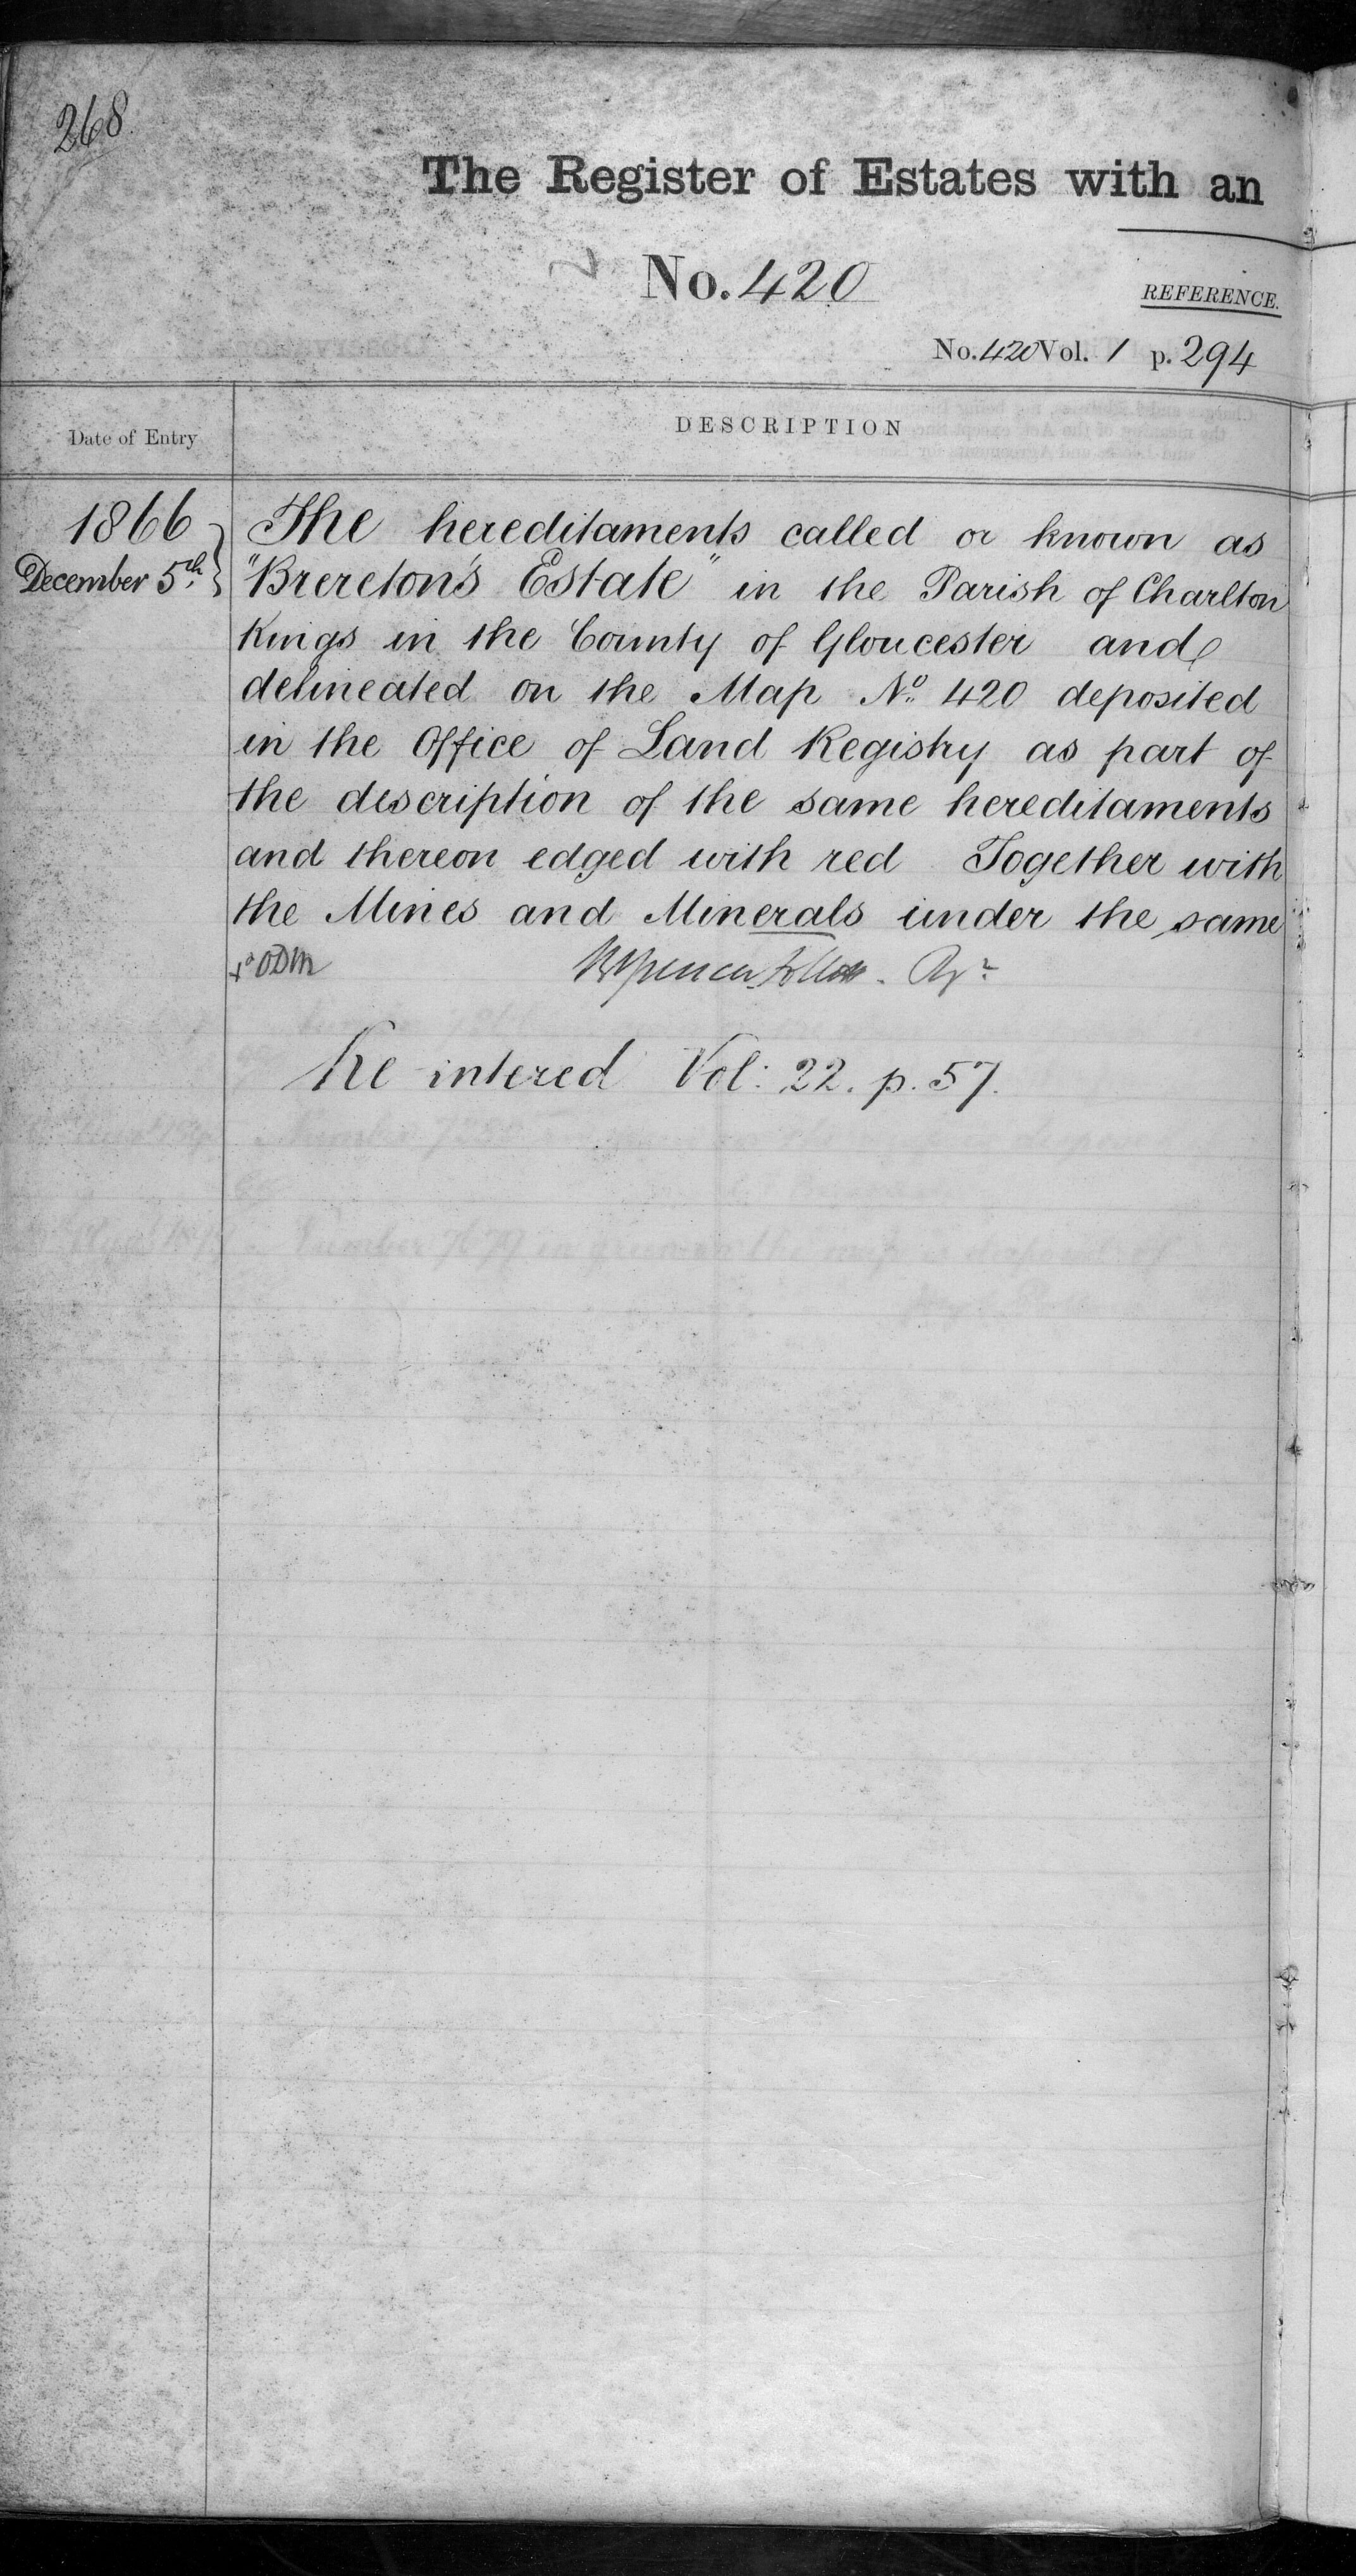 268.
The Register of Estates with an
No. 420
REFERENCE.
No. 420 Vol. 1 p. 294
Date of Entry
DESCRIPTION
1866
December 5th.
The hereditaments called or known as
"Brereton's Estate" in the Parish of Charlton
Kings in the County of Gloucester and
delineated on the Map No. 420 deposited
in the Office of Land Registry as part of
the description of the same hereditaments
and thereon edged with red Together with
the Mines and Minerals under the same
Re-intered Vol: 22. p. 57.